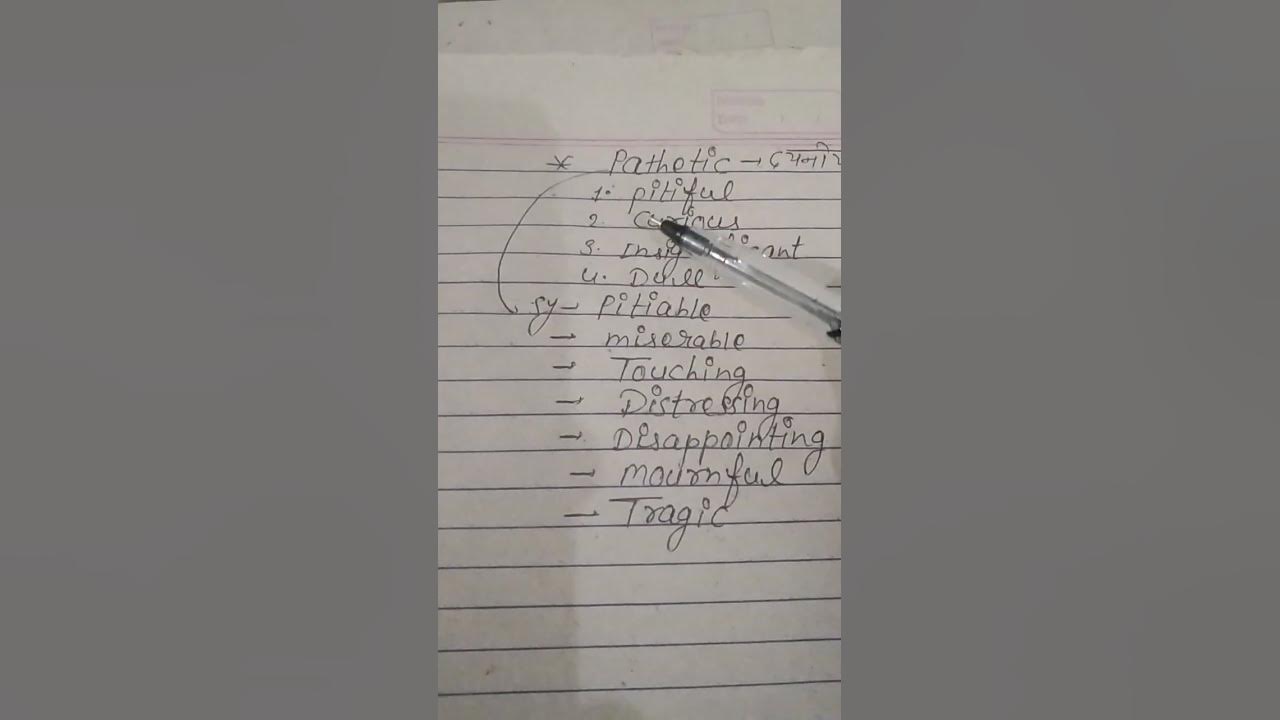 * Pathetic → दयनीय
1. pitiful
2. Curious
3. Insignificant
4. Dull
Sy → Pitiable
→ miserable
→ Touching
→ Distressing
→ Disappointing
→ mournful
→ Tragic